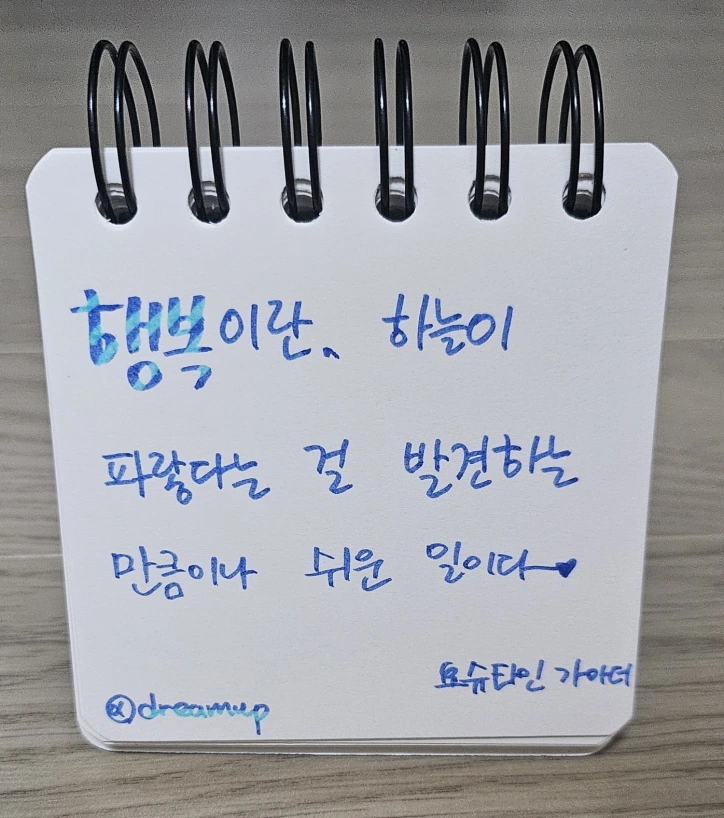 행복이란, 하늘이
파랗다는 걸 발견하는
만큼이나 쉬운 일이다
요슈타인 가아더
@dreamup